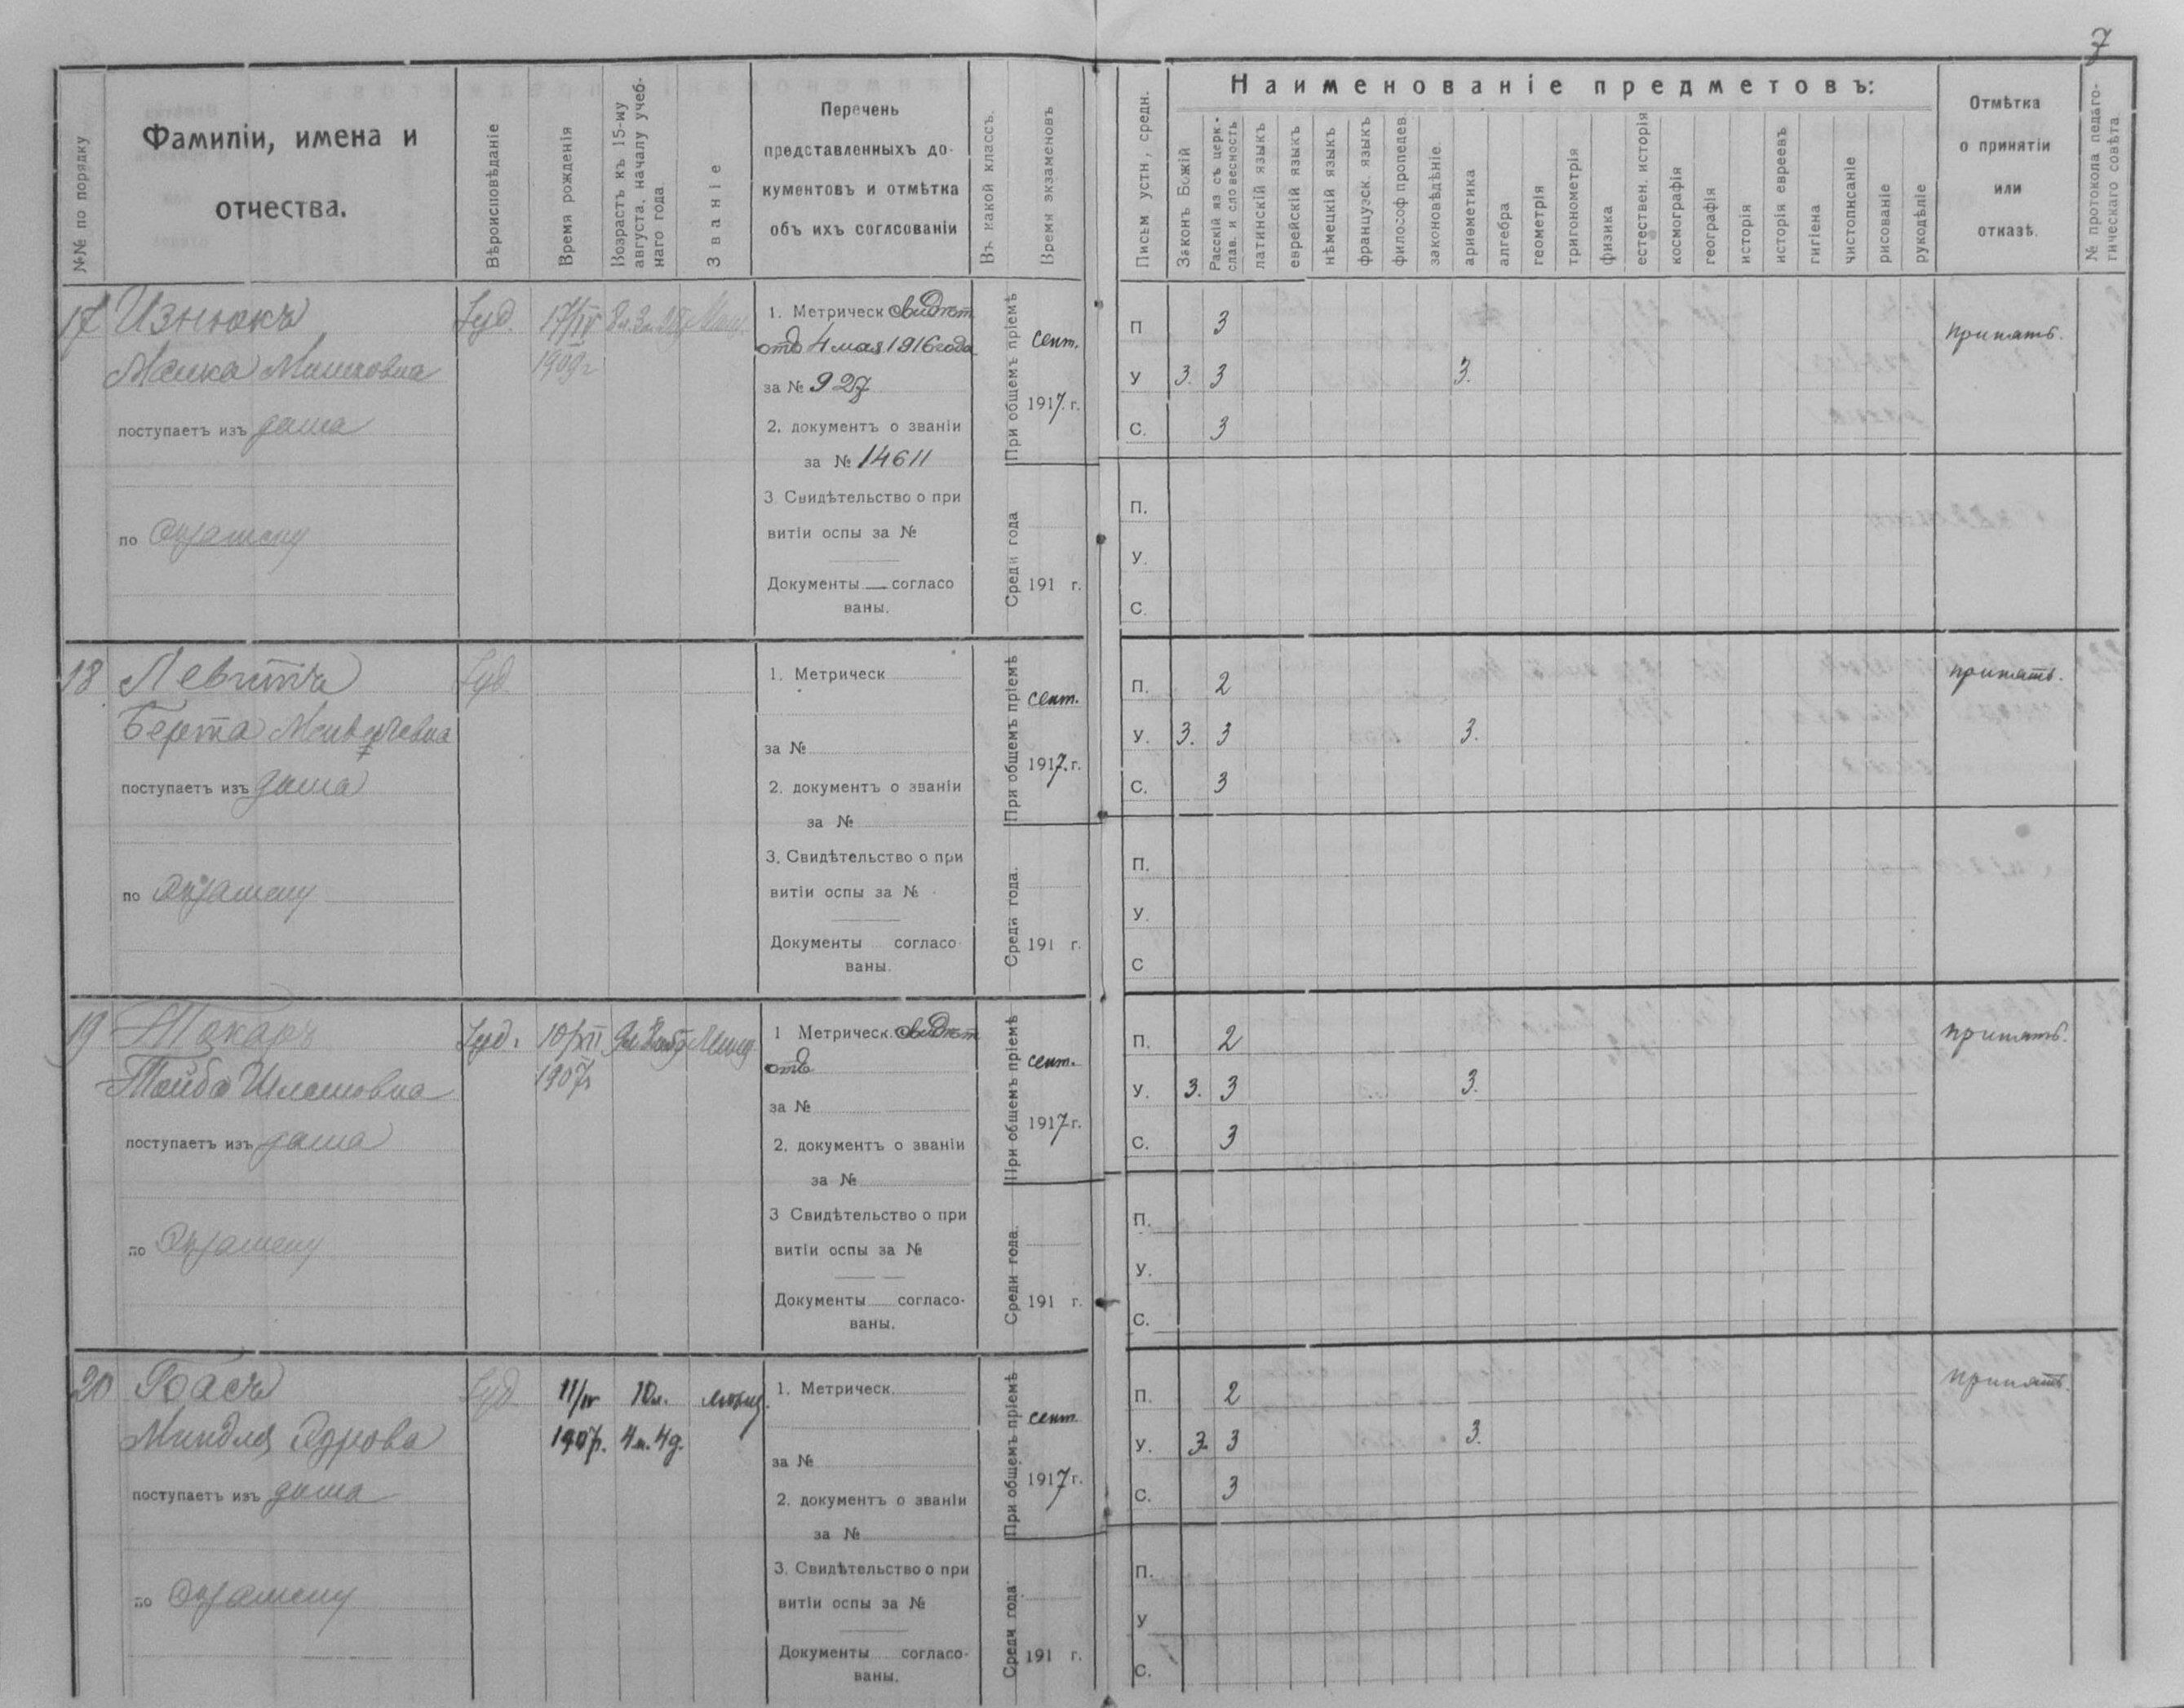 7
№№ по порядку
Фамиліи, имена и
отчества.
Вѣроисповѣданіе
Время рожденія
Возрастъ къ 15-му
августа, началу учеб-
наго года.
Званіе
Перечень
представленныхъ до-
кументовъ и отмѣтка
объ ихъ соглсованіи
Въ какой классъ.
Время экзаменовъ
Письм устн, средн.
Наименованіе предметовъ:
Законъ Божій
Расскій яз съ церк.-
слав. и словесность
латинскій языкъ
еврейскій языкъ
нѣмецкій языкъ
французск. языкъ
философ пропедев.
законовѣдѣніе.
ариѳметика
алгебра
геометрія
тригонометрія
физика
естествен. исторія
космографія
географія
исторія
исторія евреевъ
гигіена
чистописаніе
рисованіе
рукодѣліе
Отмѣтка
о принятіи
или
отказѣ.
№ протокола педаго-
гическаго совѣта
17 Изнюкъ
Іуд. 17/IV
1909 г
поступаетъ изъ дома
по Экзамену
1. Метрическ свидѣт
отъ 4 мая 1916 года
за № 927
2. документъ о званіи
за № 14611
3 Свидѣтельство о при
витіи оспы за №
Документы согласо
ваны.
При общемъ пріемѣ
сент.
1917. г.
Среди года
191 г.
П 3
У 3. 3 3.
С. 3
принять.
П.
У.
С.
18 Левитъ
Берта
Іуд.
поступаетъ изъ дома
по Экзамену
1. Метрическ
за №
2. документъ о званіи
за №
3. Свидѣтельство о при
витіи оспы за №
Документы согласо-
ваны.
При общемъ пріемѣ
сент.
1917. г.
Среди года.
191 г.
П. 2
У. 3. 3 3.
С. 3
принять.
П.
У.
С
19 Токарь
Тайба Шлемовна
Іуд.
1907г
поступаетъ изъ дома
по Экзамену
1 Метрическ. свидѣт
отъ
за №
2. документъ о званіи
за №
3 Свидѣтельство о при
витіи оспы за №
Документы согласо-
ваны.
При общемъ пріемѣ
сент.
1917 г.
Среди года.
191 г.
П. 2
У. 3. 3 3.
С. 3
принять.
П.
У.
С.
20 Басъ
Миндля
Іуд 11/IV 10л. мѣщ.
1907г. 4м. 4д.
поступаетъ изъ дома
по Экзамену
1. Метрическ.
за №
2. документъ о званіи
за №
3. Свидѣтельство о при
витіи оспы за №
Документы согласо-
ваны.
При общемъ пріемѣ
сент
1917 г.
Среди года.
191 г.
П. 2
У. 3. 3 3.
С. 3
принять.
П.
У
С.